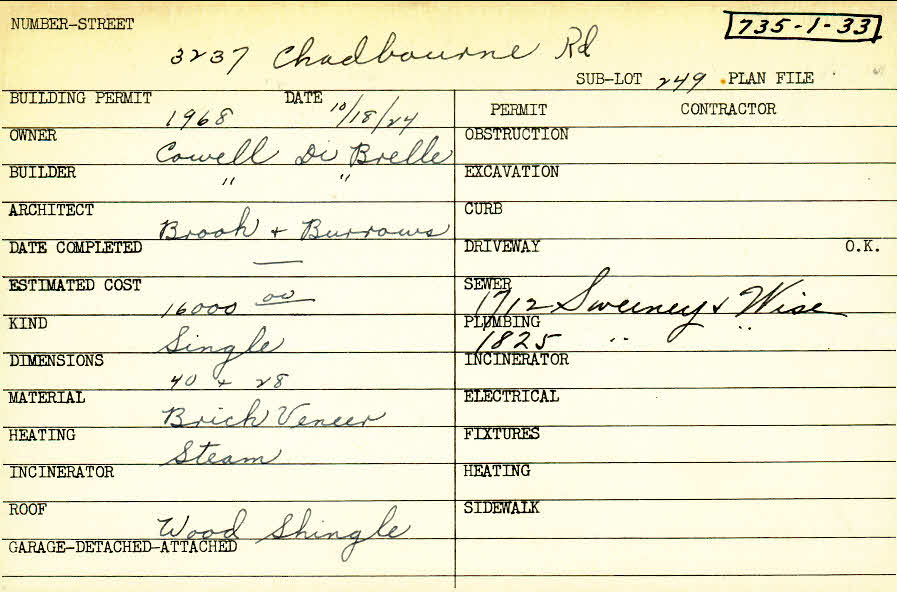 NUMBER-STREET
735-1-33
3237 Chadbourne Rd
SUB-LOT 249 PLAN FILE
BUILDING PERMIT 1968 DATE 10/18/24
OWNER Cowell Di Brelle
BUILDER " "
ARCHITECT Brook + Burrows
DATE COMPLETED —
ESTIMATED COST 16000 00
KIND Single
DIMENSIONS 40 + 28
MATERIAL Brick Veneer
HEATING Steam
INCINERATOR
ROOF Wood Shingle
GARAGE-DETACHED-ATTACHED
PERMIT CONTRACTOR
OBSTRUCTION
EXCAVATION
CURB
DRIVEWAY O.K.
SEWER 1712 Sweeney & Wise
PLUMBING 1825 " "
INCINERATOR
ELECTRICAL
FIXTURES
HEATING
SIDEWALK